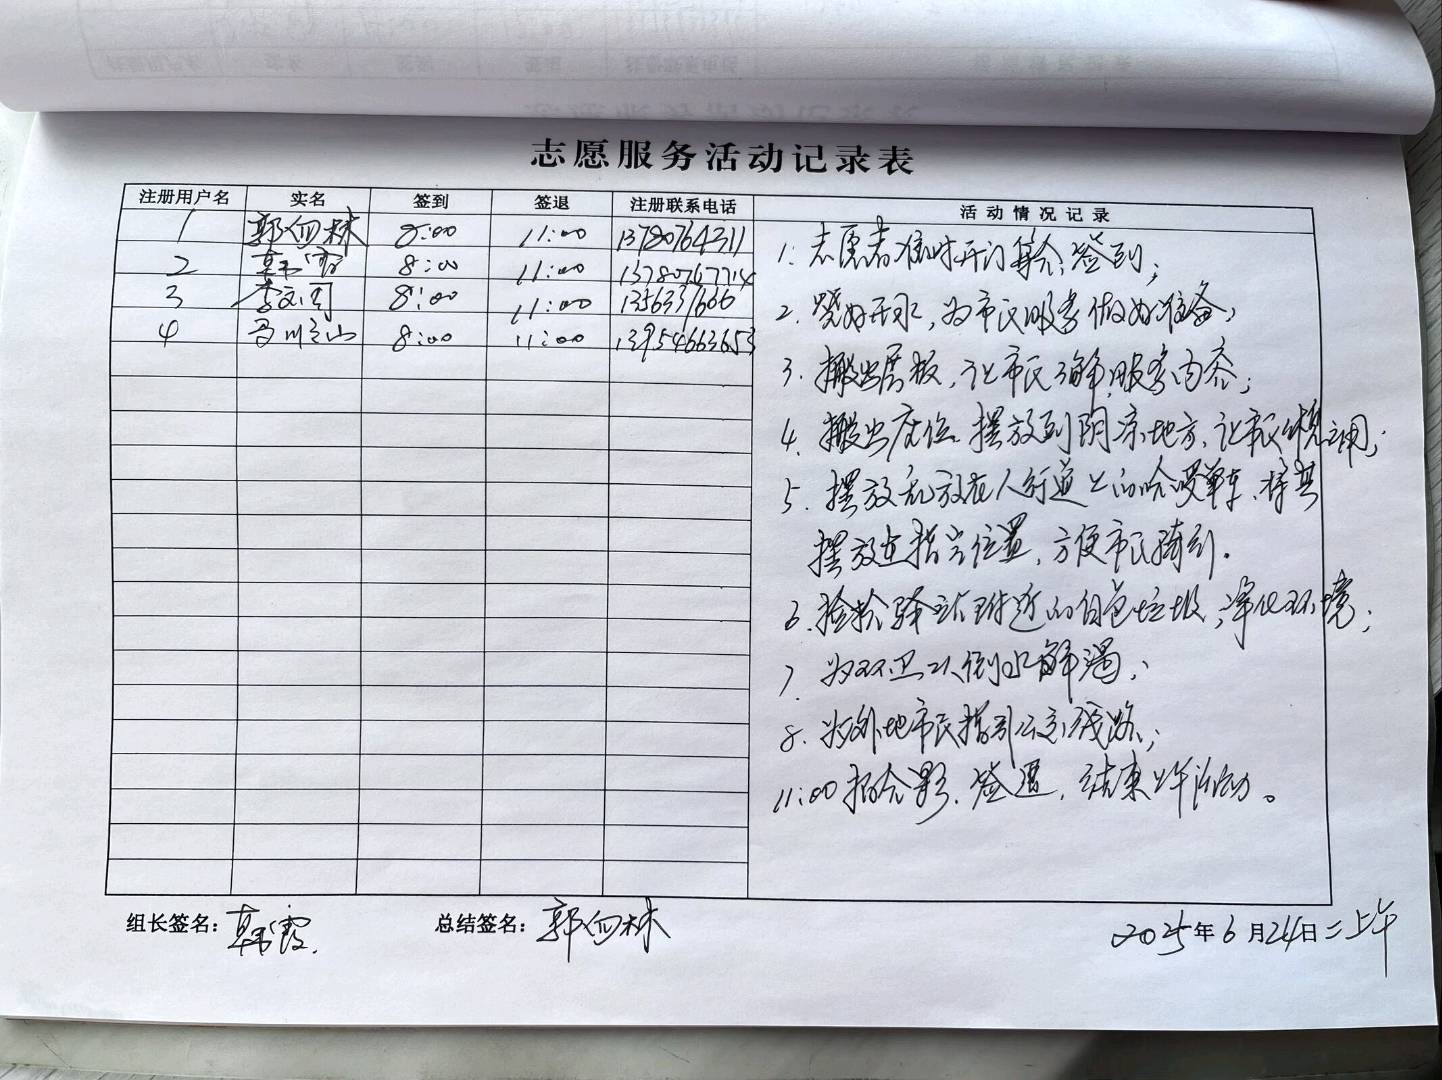 志愿服务活动记录表
注册用户名 实名 签到 签退 注册联系电话 活动情况记录
1 郭向林 8:00 11:00 13780764311
2 韩霞 8:00 11:00 13780767714
3 8:00 11:00 1356337666
4 8:00 11:00 13954663653
1. 志愿者准时开门集合,签到;
2. 烧好开水,为市民服务做好准备;
3. 搬出展板,让市民了解服务内容;
4. 搬出座位 摆放到阴凉地方,让市民
5. 摆放乱放在人行道上的哈啰单车,将其
摆放进指定位置,方便市民骑行.
6. 捡拾驿站附近的白色垃圾,净化环境;
7. 为环卫工人倒水解渴;
8. 为外地市民指引公交线路;
11:00 拍合影,签退,结束上午活动。
组长签名: 韩霞. 总结签名: 郭向林
2025年6月24日二上午